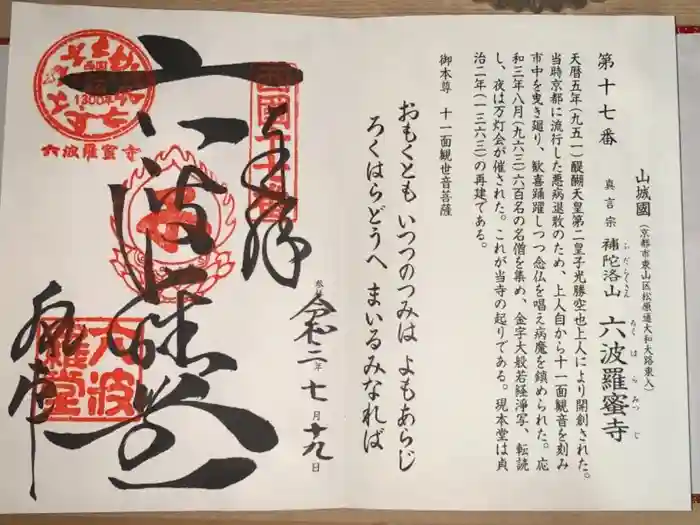 山城國(京都市東山区松原通大和大路東入)
第十七番 真言宗 補陀洛山 六波羅蜜寺
ふだらくさん ろくはらみつじ
天暦五年(九五一)醍醐天皇第二皇子光勝空也上人により開創された。
当時京都に流行した悪病退散のため、上人自から十一面観音を刻み
市中を曳き廻り、歓喜踊躍しつつ念仏を唱え病魔を鎮められた。応
和三年八月(九六三)六百名の名僧を集め、金字大般若経浄写、転読
し、夜は万灯会が催された。これが当寺の起りである。現本堂は貞
治二年(一三六三)の再建である。
御本尊 十一面観世音菩薩
おもくとも いつつのつみは よもあらじ
ろくはらどうへ まいるみなれば
奉拝
令和二年七月十九日
西国十七番
六波羅堂
1300年
六波羅蜜寺